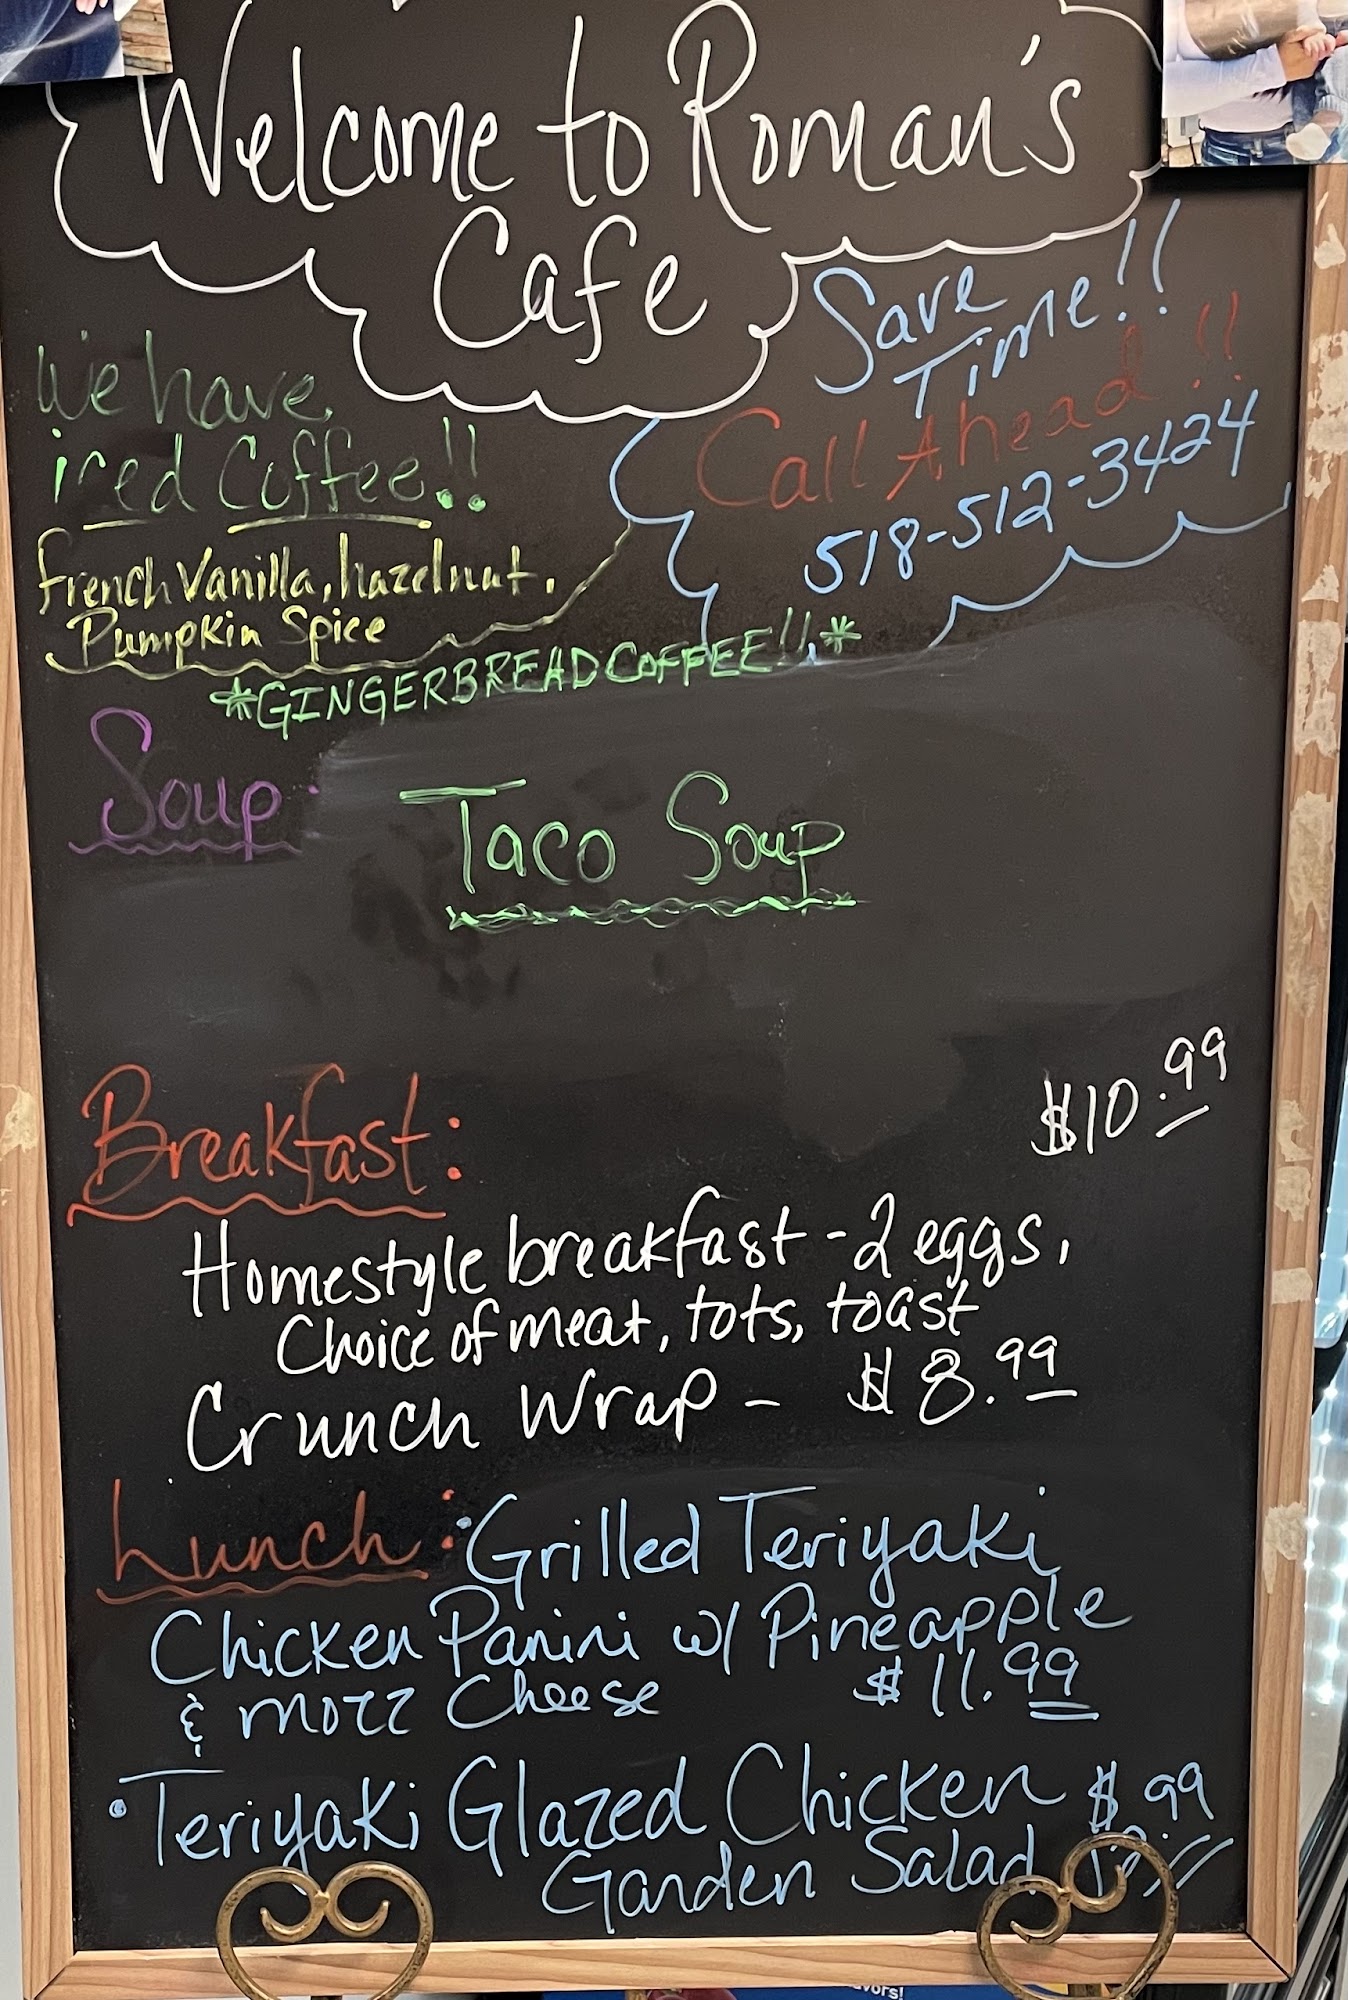 Welcome to Roman's
Cafe
Save
Time!!
Call Ahead!!
518-512-3424
We have
iced Coffee!!
French Vanilla, hazelnut,
Pumpkin Spice
*GINGERBREAD COFFEE!!*
Soup:
Taco Soup
Breakfast:
$10.99
Homestyle breakfast - 2 eggs,
Choice of meat, tots, toast
Crunch Wrap - $8.99
Lunch: • Grilled Teriyaki
Chicken Panini w/ Pineapple
& mozz Cheese $11.99
• Teriyaki Glazed Chicken
Garden Salad
vors!